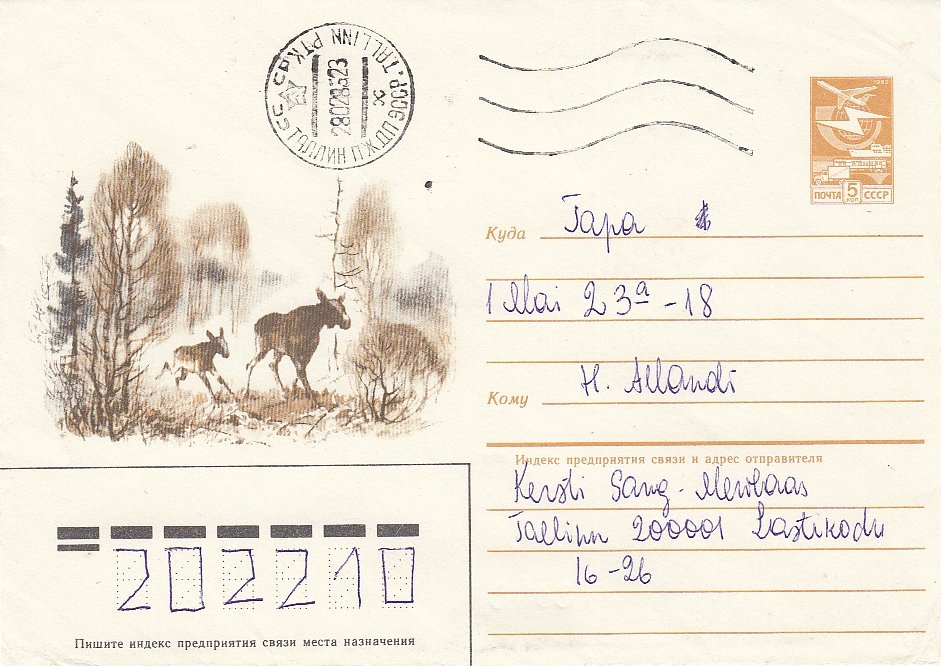 СССР ТАЛЛИН ПЖДП ЭССР. TALLINN PTK
28028623
1982
ПОЧТА 5 КОП СССР
Куда Тара
1 Mai 23ª-18
Кому H. Allandi
Индекс предприятия связи и адрес отправителя
Kersti Sang-Merilaas
Tallinn 200001 Lastekodu
16-26
202210
Пишите индекс предприятия связи места назначения